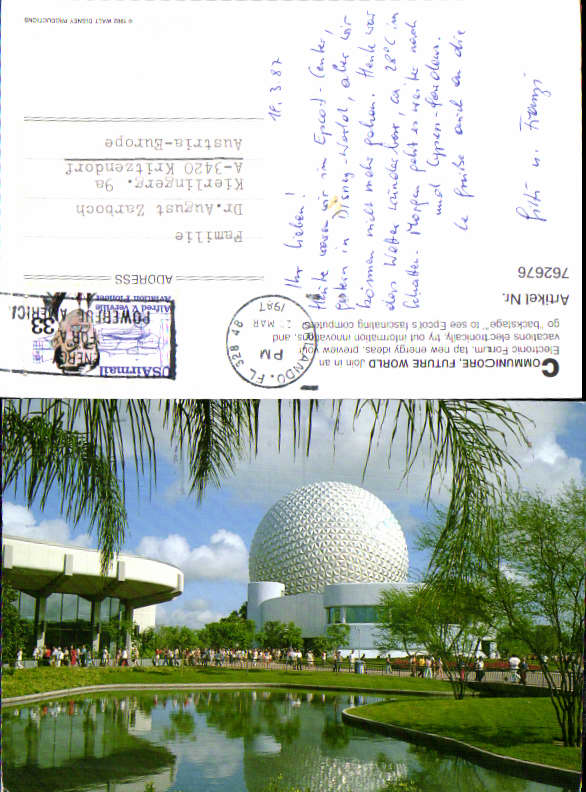 COMMUNICORE, FUTURE WORLD Join in an
Electronic Forum, tap new energy ideas, preview your
vacations electronically, try out information innovations, and
go "backstage" to see Epcot's fascinating computers.
Artikel Nr.
762676
ADDRESS
Familie
Dr. August Zarboch
Kierlingerg. 9a
A-3420 Kritzendorf
Austria-Europe
© 1982 WALT DISNEY PRODUCTIONS
USAirmail
Alfred V. Verville
Aviation Pioneer
33
ENERGY
FOR
POWERFUL AMERICA
ORLANDO, FL 328
PM
MAR
1987
18.3.87
Ihr Lieben!
Heute waren wir im Epcot-Center,
gestern in Disney-World, aber wir
können nicht mehr gehen. Heute war
das Wetter wunderbar, ca. 28°C im
Schatten. Morgen geht es weiter nach
und Cypress-Gardens.
Grüße auch an die
u. Franzi